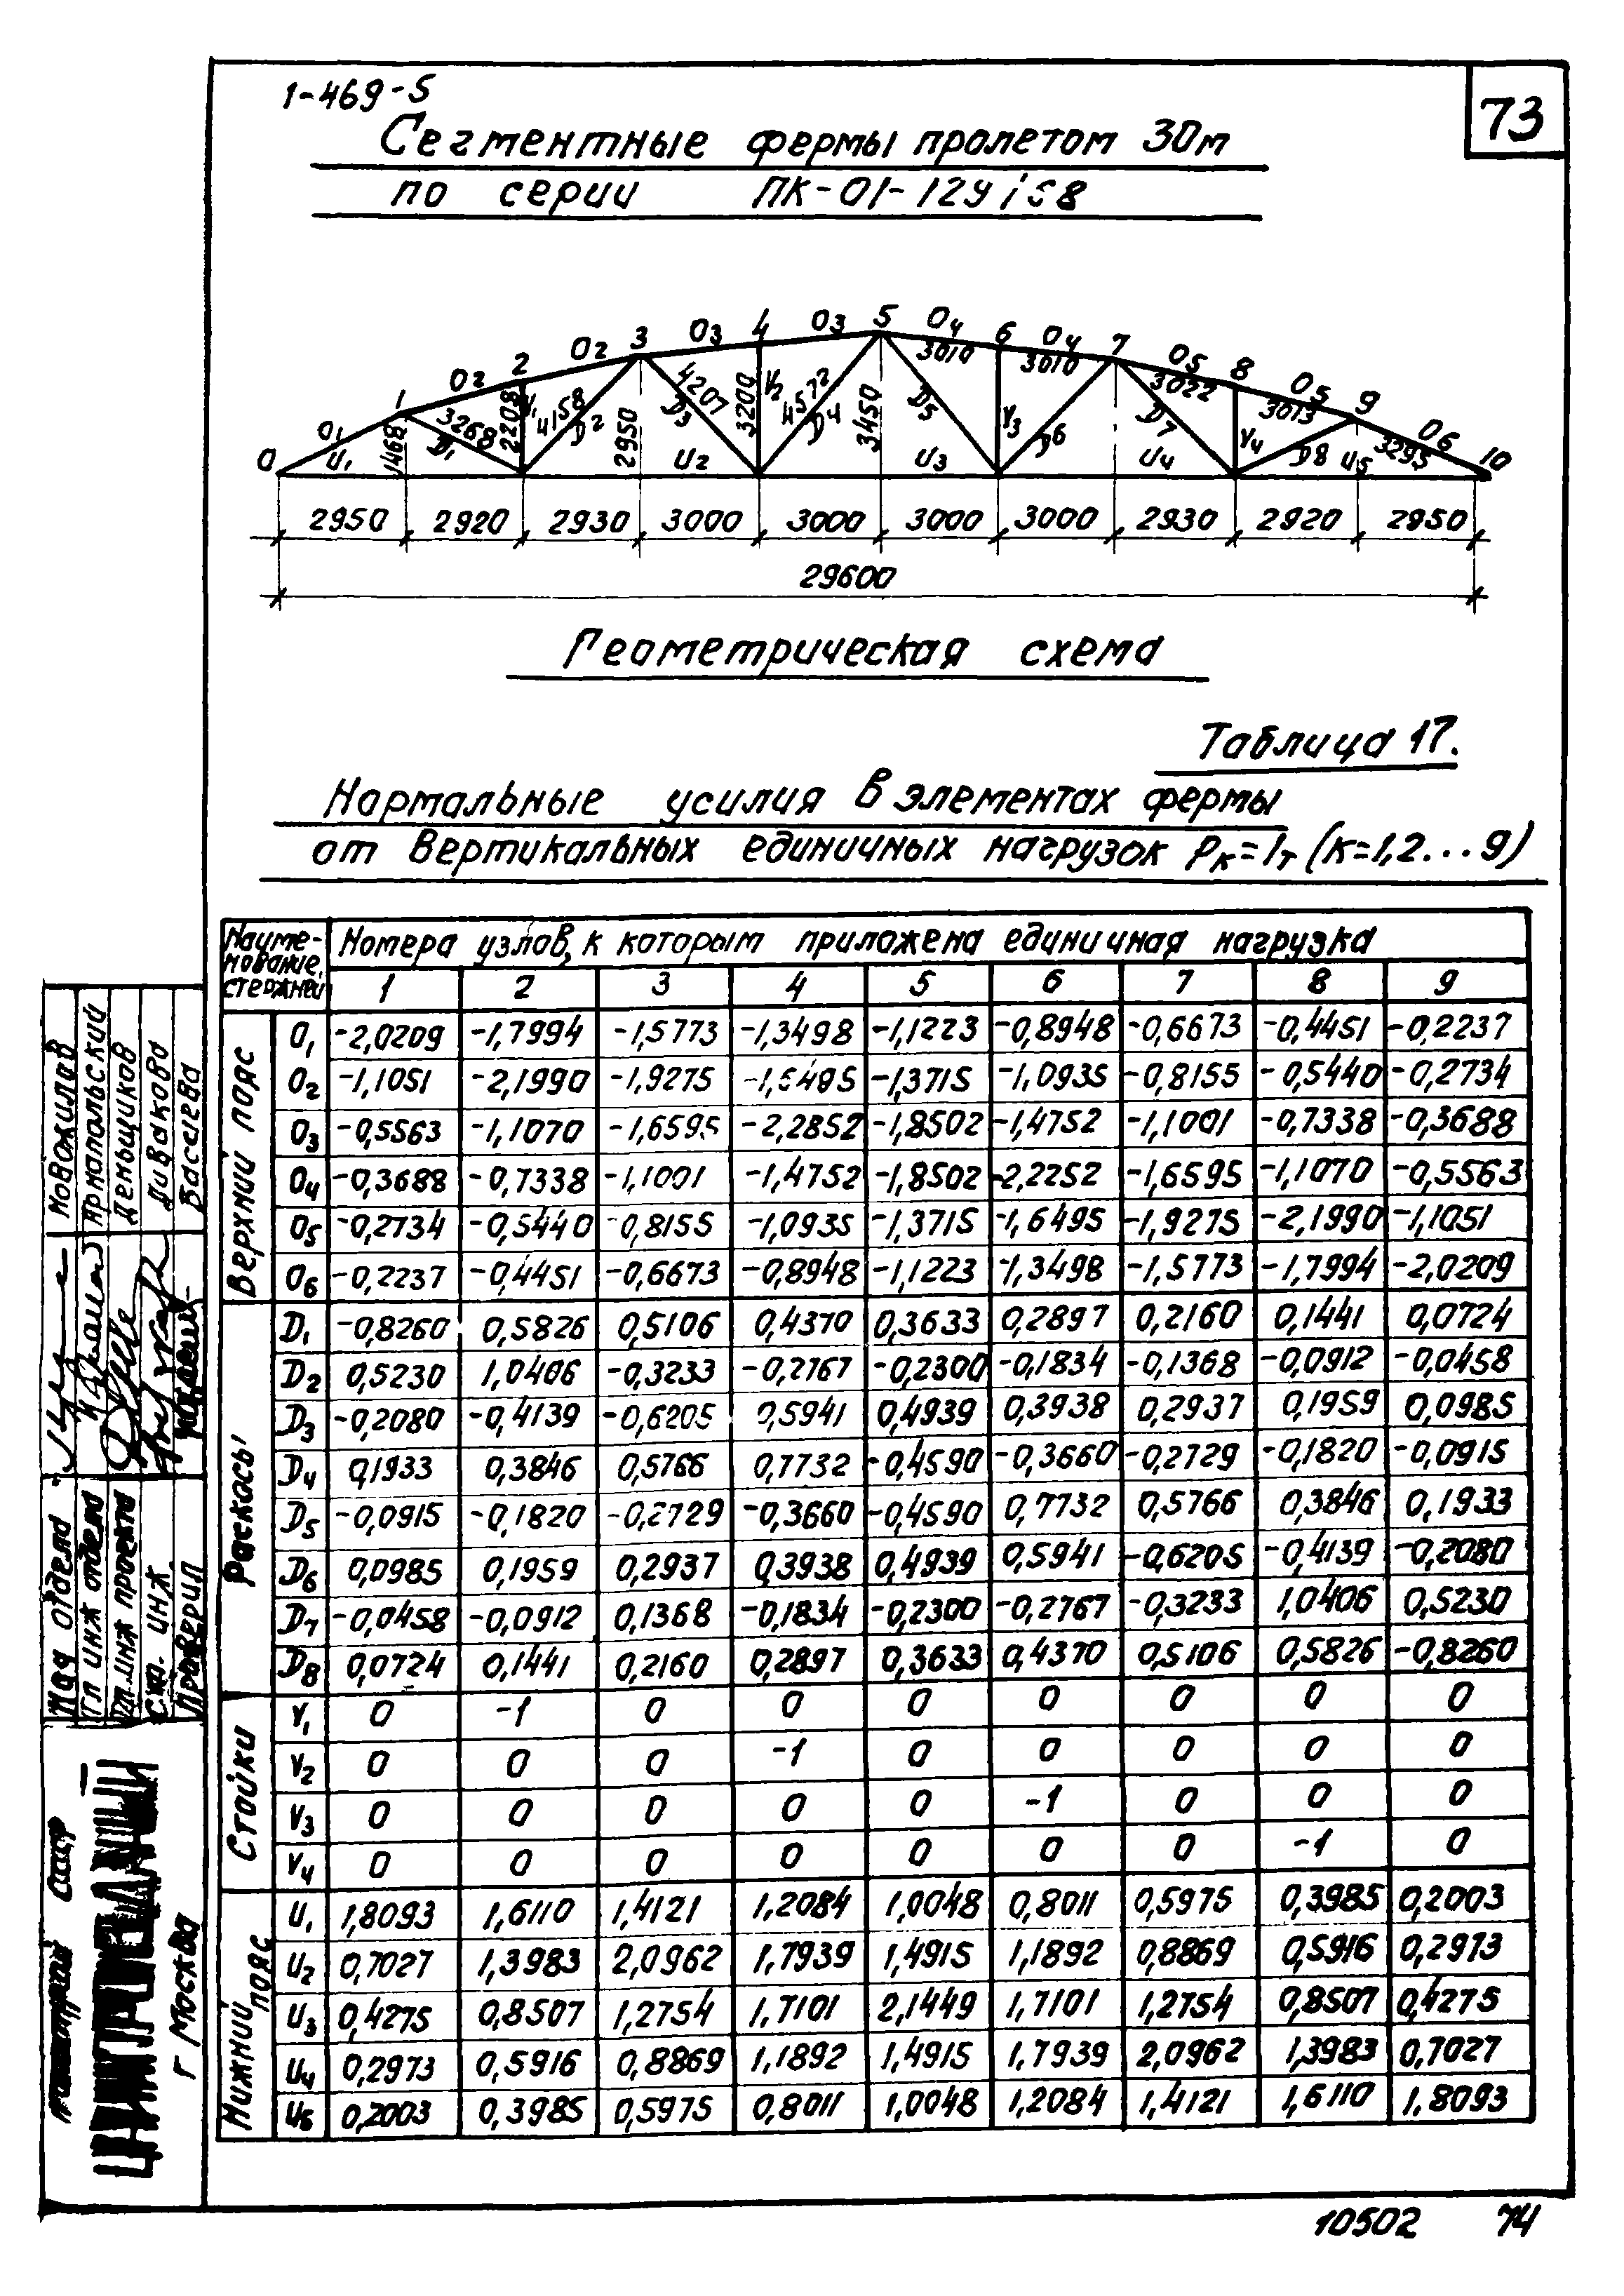 1-469-5
73
Сегментные фермы пролетом 30м
по серии ПК-01-129/58
0 1 2 3 4 5 6 7 8 9 10
O1 O2 O2 O3 O3 O4 O4 O5 O5 O6
3010 3010 3022 3013 3295
1468 3268 2208 4158 2950 4207 3200 4572 3450
D1 V1 D2 D3 V2 D4 D5 V3 D6 D7 V4 D8
U1 U2 U3 U4 U5
2950 2920 2930 3000 3000 3000 3000 2930 2920 2950
29600
Геометрическая схема
Таблица 17.
Нормальные усилия в элементах фермы
от вертикальных единичных нагрузок Pк=1т (к=1,2...9)
Наиме-
нование
стержней
Номера узлов, к которым приложена единичная нагрузка
1 2 3 4 5 6 7 8 9
Верхний пояс
O1 -2,0209 -1,7994 -1,5773 -1,3498 -1,1223 -0,8948 -0,6673 -0,4451 -0,2237
O2 -1,1051 -2,1990 -1,9275 -1,6495 -1,3715 -1,0935 -0,8155 -0,5440 -0,2734
O3 -0,5563 -1,1070 -1,6595 -2,2852 -1,8502 -1,4752 -1,1001 -0,7338 -0,3688
O4 -0,3688 -0,7338 -1,1001 -1,4752 -1,8502 -2,2252 -1,6595 -1,1070 -0,5563
O5 -0,2734 -0,5440 -0,8155 -1,0935 -1,3715 -1,6495 -1,9275 -2,1990 -1,1051
O6 -0,2237 -0,4451 -0,6673 -0,8948 -1,1223 -1,3498 -1,5773 -1,7994 -2,0209
Раскосы
D1 -0,8260 0,5826 0,5106 0,4370 0,3633 0,2897 0,2160 0,1441 0,0724
D2 0,5230 1,0406 -0,3233 -0,2767 -0,2300 -0,1834 -0,1368 -0,0912 -0,0458
D3 -0,2080 -0,4139 -0,6205 0,5941 0,4939 0,3938 0,2937 0,1959 0,0985
D4 0,1933 0,3846 0,5766 0,7732 -0,4590 -0,3660 -0,2729 -0,1820 -0,0915
D5 -0,0915 -0,1820 -0,2729 -0,3660 -0,4590 0,7732 0,5766 0,3846 0,1933
D6 0,0985 0,1959 0,2937 0,3938 0,4939 0,5941 -0,6205 -0,4139 -0,2080
D7 -0,0458 -0,0912 0,1368 -0,1834 -0,2300 -0,2767 -0,3233 1,0406 0,5230
D8 0,0724 0,1441 0,2160 0,2897 0,3633 0,4370 0,5106 0,5826 -0,8260
Стойки
V1 0 -1 0 0 0 0 0 0 0
V2 0 0 0 -1 0 0 0 0 0
V3 0 0 0 0 0 -1 0 0 0
V4 0 0 0 0 0 0 0 -1 0
Нижний пояс
U1 1,8093 1,6110 1,4121 1,2084 1,0048 0,8011 0,5975 0,3985 0,2003
U2 0,7027 1,3983 2,0962 1,7939 1,4915 1,1892 0,8869 0,5916 0,2973
U3 0,4275 0,8507 1,2754 1,7101 2,1449 1,7101 1,2754 0,8507 0,4275
U4 0,2973 0,5916 0,8869 1,1892 1,4915 1,7939 2,0962 1,3983 0,7027
U5 0,2003 0,3985 0,5975 0,8011 1,0048 1,2084 1,4121 1,6110 1,8093
Нач отдела
Гл инж отдела
Гл.инж проекта
Ст. инж.
Проверил
Армапольский
Деньщиков
Дивакова
Васиева
СССР
г Москва
10502 74